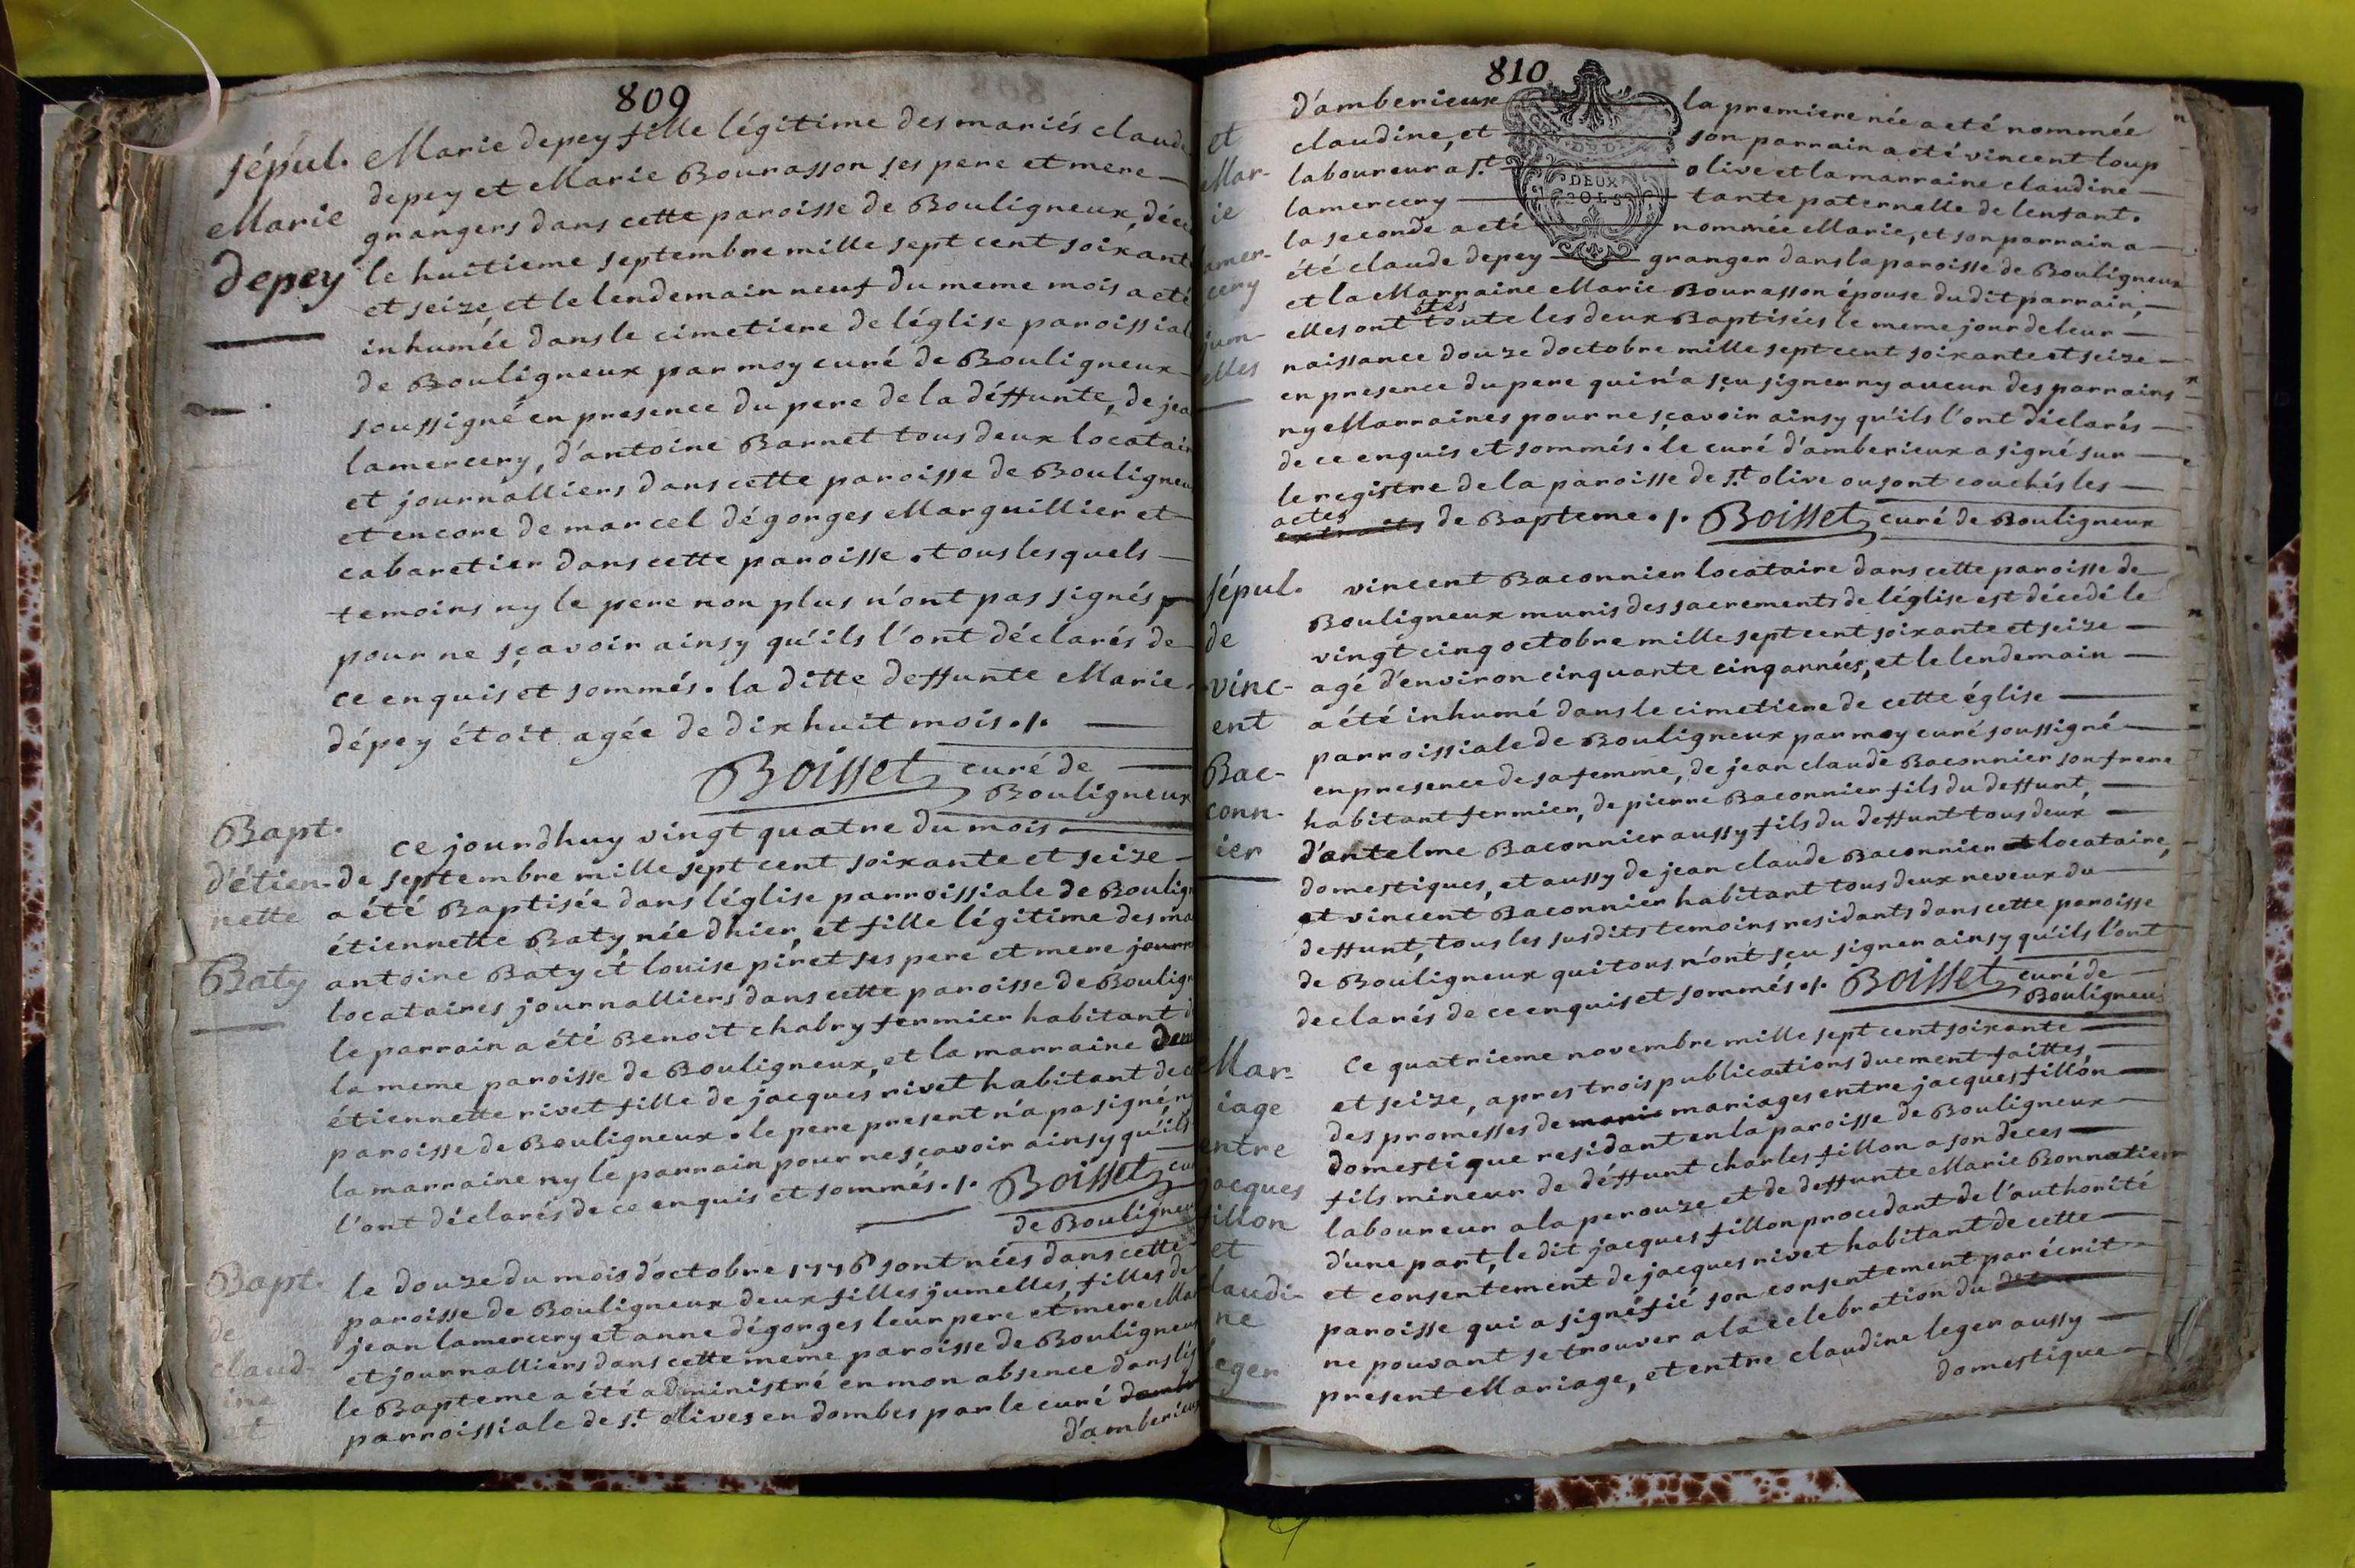 809
sépul. Marie depey fille légitime des mariés claude
depey et Marie Bourasson ses pere et mere
Marie grangers dans cette paroisse de Bouligneux, déce
depey le huitieme septembre mille sept cent soixante
et seize, et le lendemain neuf du meme mois a eté
inhumée dans le cimetiere de léglise paroissial
de Bouligneux par moy curé de Bouligneux
soussigné en presence du pere de la déffunte, de jea
lamercery, d'antoine Barnet tous deux locatair
et journalliers dans cette paroisse de Bouligneu
et encore de marcel dégorges Marguillier et
cabaretier dans cette paroisse. tous lesquels
temoins ny le pere non plus n'ont pas signés
pour ne sçavoir ainsy qu'ils l'ont déclarés de
ce enquis et sommés. la ditte deffunte Marie
dépey étoit agée de dix huit mois ./.
Boisset curé de
Bouligneux
Bapt. ce jourdhuy vingt quatre du mois
d'étien- de septembre mille sept cent soixante et seize
nette a été Baptisée dans léglise parroissiale de Boulign
étiennette Baty, née d'hier, et fille légitime des ma
Baty antoine Baty et louise piret ses pere et mere journ
locataires journalliers dans cette paroisse de Boulign
le parrain a été Benoit chabry fermier habitant d
la meme paroisse de Bouligneux, et la marraine
étiennette rivet fille de jacques rivet habitant de c
paroisse de Bouligneux. le pere present n'a pa signé, n
la marraine ny le parrain pour ne sçavoir ainsy qu'ils
l'ont déclarés de ce enquis et sommés ./. Boisset cu
de Bouligneu
Bapt. le douze du mois d'octobre 1776 sont nées dans cette
de paroisse de Bouligneux deux filles jumelles, filles de
claud- jean lamercery et anne dégorges leur pere et mere
ine et journalliers dans cette meme paroisse de Bouligneux
et le Bapteme a été administré en mon absence dans l'é
parroissiale de st. olives en dombes par le curé damb
d'amberieux
810
et d'amberieux la premiere née a eté nommée
Mar- claudine, et son parrain a eté vincent loup
ie laboureur a st. olive et la marraine claudine
lamer- lamercery tante paternelle de lenfant.
cery la seconde a eté nommée Marie, et son parrain a
été claude depey granger dans la paroisse de Bouligneux
et la Marraine Marie Bourasson épouse du dit parrain,
étés
jum- elles ont toute les deux Baptisées le meme jour de leur
elles naissance douze doctobre mille sept cent soixante et seize
en presence du pere qui n'a sçu signer ny aucun des parrains
ny Marraines pour ne sçavoir ainsy qu'ils l'ont déclarés
de ce enquis et sommés. le curé d'amberieux a signé sur
le registre de la paroisse de st. olive ou sont couchés les
actes
extraits de Bapteme ./. Boisset curé de Bouligneux
DEUX
SOLS
sépul. vincent Baconnier locataire dans cette paroisse de
Bouligneux munis des sacrements de léglise est décedé le
de vingt cinq octobre mille sept cent soixante et seize
vinc- agé d'environ cinquante cinq années, et le lendemain
ent a été inhumé dans le cimetiere de cette église
parroissiale de Bouligneux par moy curé soussigné
Bac- en presence de sa femme, de jean claude Baconnier son frere
conn- habitant fermier, de pierre Baconnier fils du deffunt,
ier d'antelme Baconnier aussy fils du deffunt tous deux
domestiques, et aussy de jean claude Baconnier et locataire,
et vincent Baconnier habitant tous deux neveux du
deffunt, tous les susdits temoins residants dans cette paroisse
de Bouligneux qui tous n'ont sçu signer ainsy qu'ils l'ont
declarés de ce enquis et sommés ./. Boisset curé de
Bouligneux
Mar- Ce quatrieme novembre mille sept cent soixante
iage et seize, apres trois publications duement faittes,
entre des promesses de marie mariages entre jacques fillon
jacques domestique residant en la paroisse de Bouligneux
fillon fils mineur de déffunt charles fillon a son deces
et laboureur a la perouze et de deffunte Marie Bonnatier
claudi- d'une part, le dit jacques fillon procedant de l'authorité
ne et consentement de jacques rivet habitant de cette
leger paroisse qui a signéfié son consentement par écrit
ne pouvant se trouver a la celebration du
present Mariage, et entre claudine leger aussy
domestique